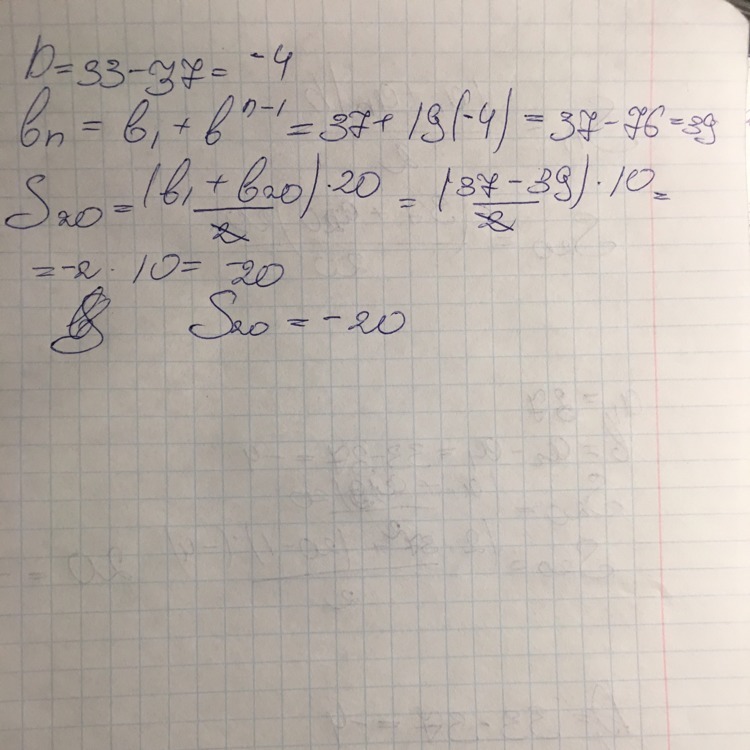 D = 33 - 37 = -4
bn = b1 + b^n-1 = 37 + 19(-4) = 37 - 76 = 39
S20 = (b1 + b20) · 20 / 2 = (37 - 39) · 10 / 2 =
= -2 · 10 = -20
S20 = -20